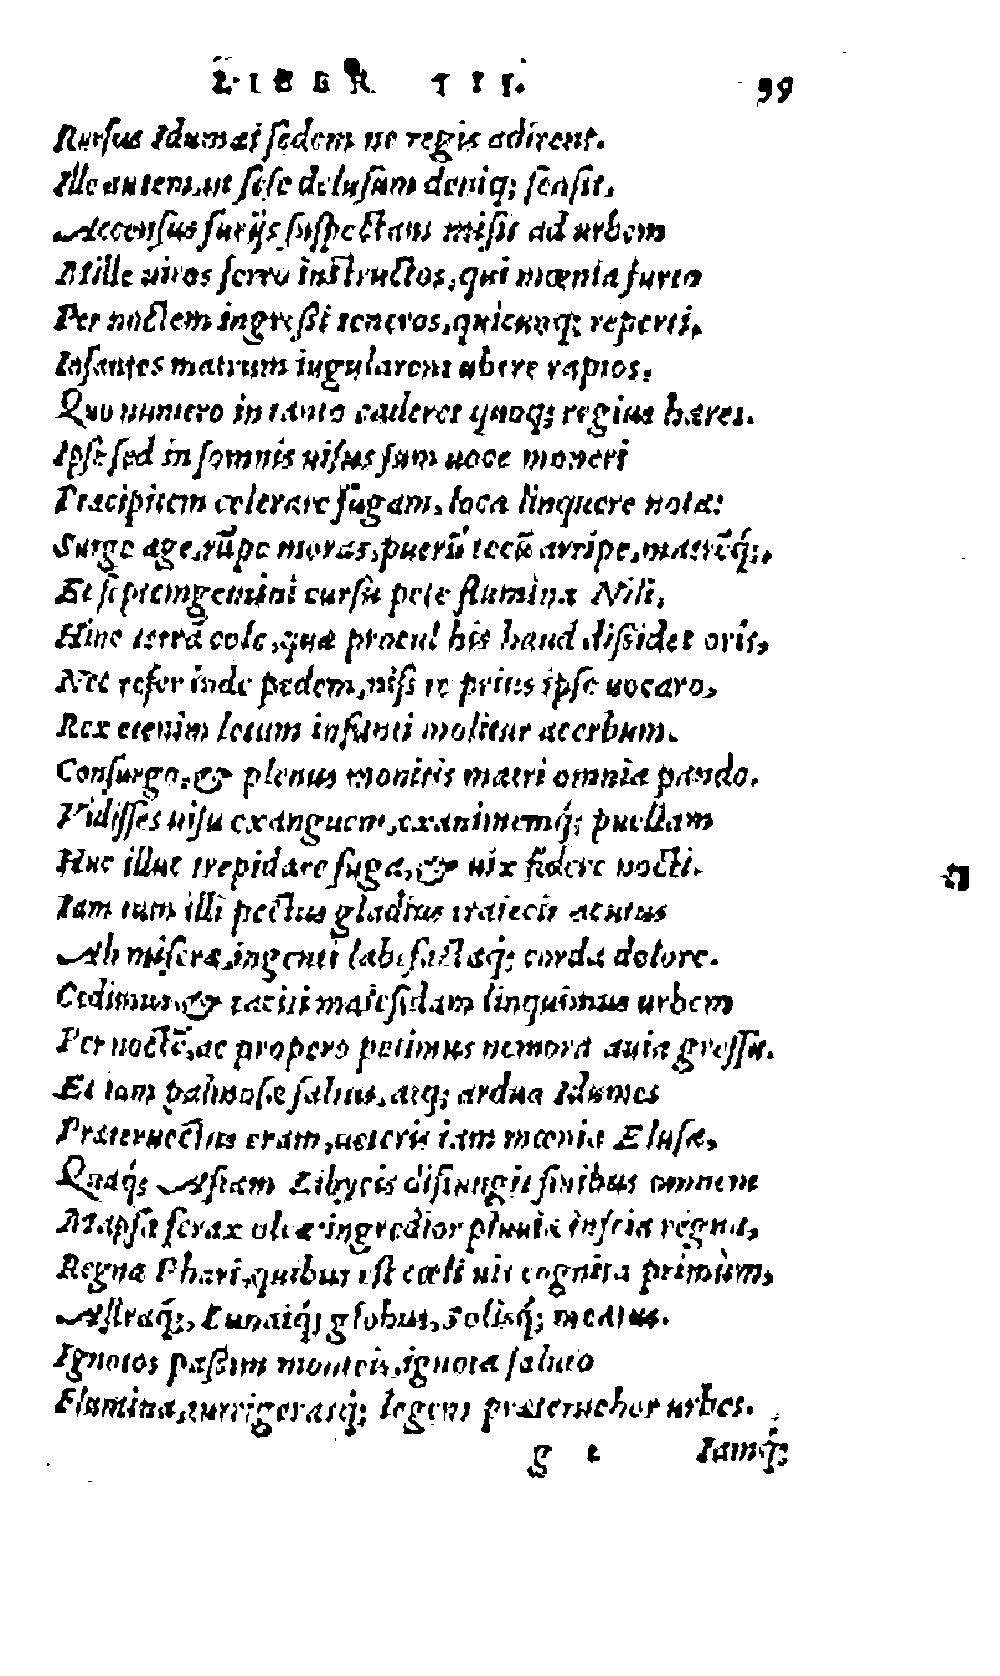 LIBER III. 99
Rursus Idumæi sedem ne regis adirent.
Ille autem, ut sese delusum deniq; sensit,
Accensus furijs suspectam misit ad urbem
Mille uiros ferro instructos, qui mœnia furto
Per noctem ingreßi teneros, quicunq; reperti,
Infantes matrum iugularent ubere raptos:
Quo numero in tanto caderet quoq; regius hæres.
Ipse sed in somnis uisus sum uoce moneri
Præcipitem celerare fugam, loca linquere nota:
Surge age, rūpe moras, puerū tecū arripe, matrēq́;,
Et septemgemini cursū pete flumina Nili,
Hinc terrā cole, quæ procul his haud dißidet oris,
Nec refer inde pedem, nisi te prius ipse uocaro,
Rex etenim letum infanti molitur acerbum.
Consurgo, & plenus monitis matri omnia pando.
Vidisses uisu exanguem, exanimemq́; puellam
Huc illuc trepidare fuga, & uix fidere nocti.
Iam tum illi pectus gladius traiecit acutus
Ah miseræ, ingenti labefactaq́; corda dolore.
Cedimus, & taciti malefidam linquimus urbem
Per noctē, ac propero petimus nemora auia gressu.
Et iam palmosæ saltus, atq; ardua Idumes
Præteruectus eram, ueteris iam mœnia Elusæ,
Quaq́; Asiam Libycis distungit finibus omnem
Mapsa ferax oleæ: ingredior pluuiæ inscia regna,
Regna Phari, quibus est cœli uis cognita primùm,
Astraq́;, Lunaiq́; globus, Solisq́; meatus.
Ignotos paßim monteis, ignota saluto
Flumina, turrigerasq́; legens præteruehor urbes.
g 2 Iamq́;